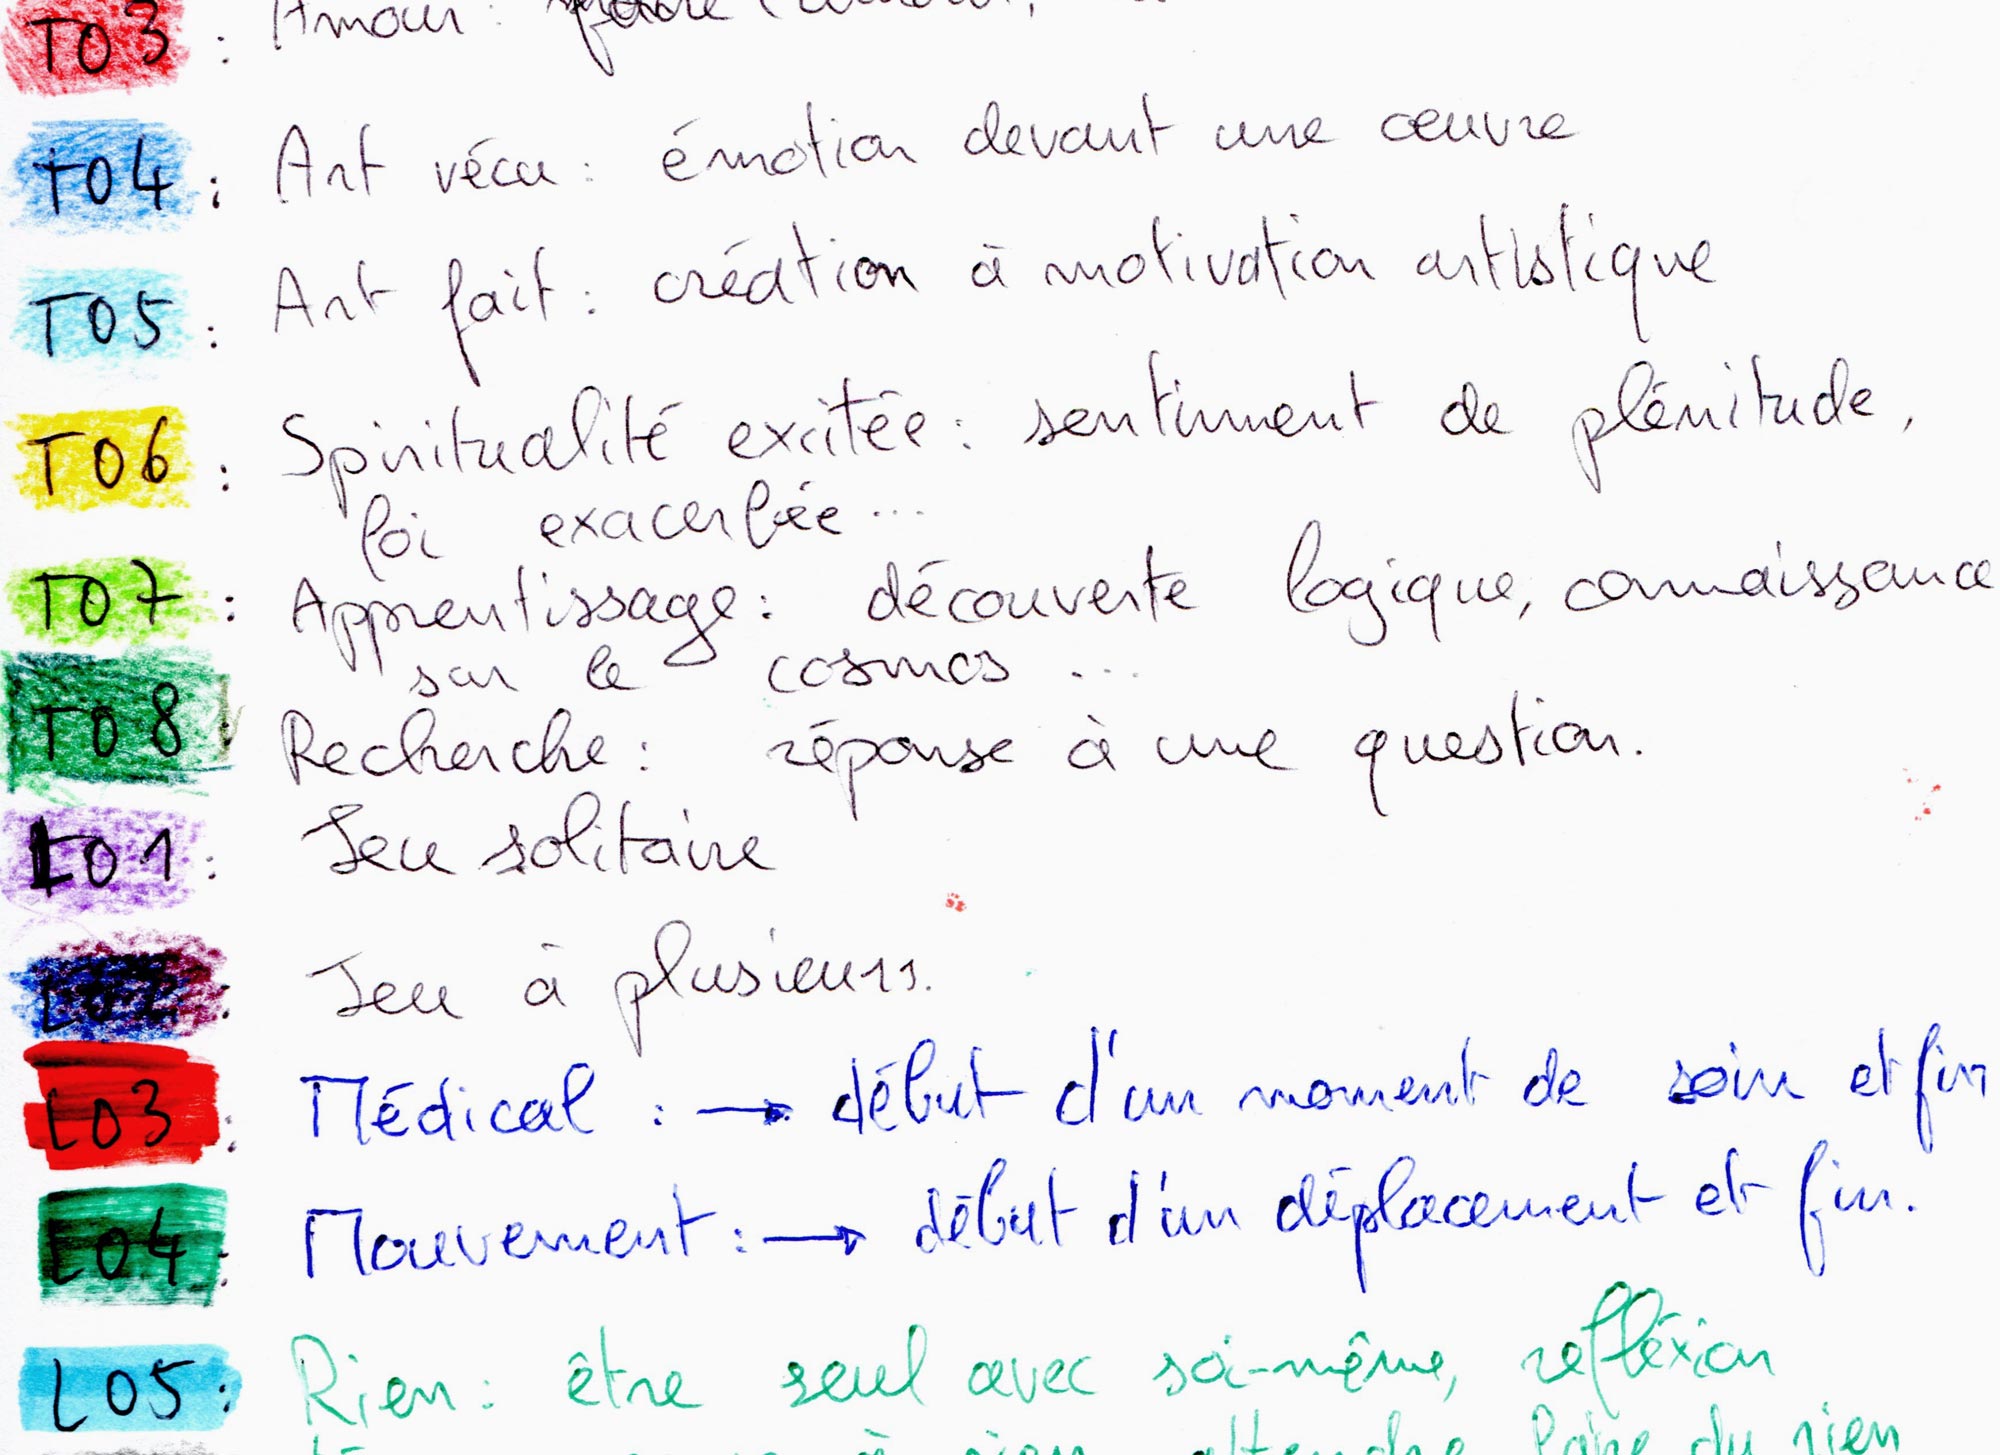 T03 : Amour : faire l'amour,
T04 : Art vécu : émotion devant une œuvre
T05 : Art fait : création à motivation artistique
T06 : Spiritualité excitée : sentiment de plénitude,
foi exacerbée ...
T07 : Apprentissage : découverte logique, connaissance
sur le cosmos ...
T08 : Recherche : réponse à une question.
L01 : Jeu solitaire
L02 : Jeu à plusieurs.
L03 : Médical : → début d'un moment de soin et fin
L04 : Mouvement : → début d'un déplacement et fin.
L05 : Rien : être seul avec soi-même, refléxion
à rien, attendre, faire du rien